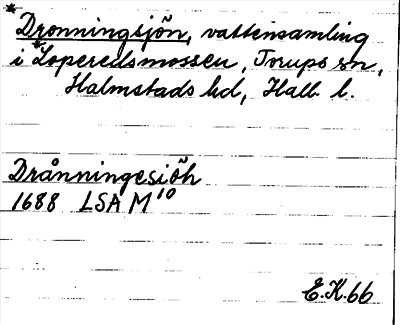 *Dronningsjön, vattensamling
i *Loperedsmossen, Torups sn,
Halmstads hd, Hall. l.
Drånningesiöh
1688 LSA M¹⁰
E.K. 66